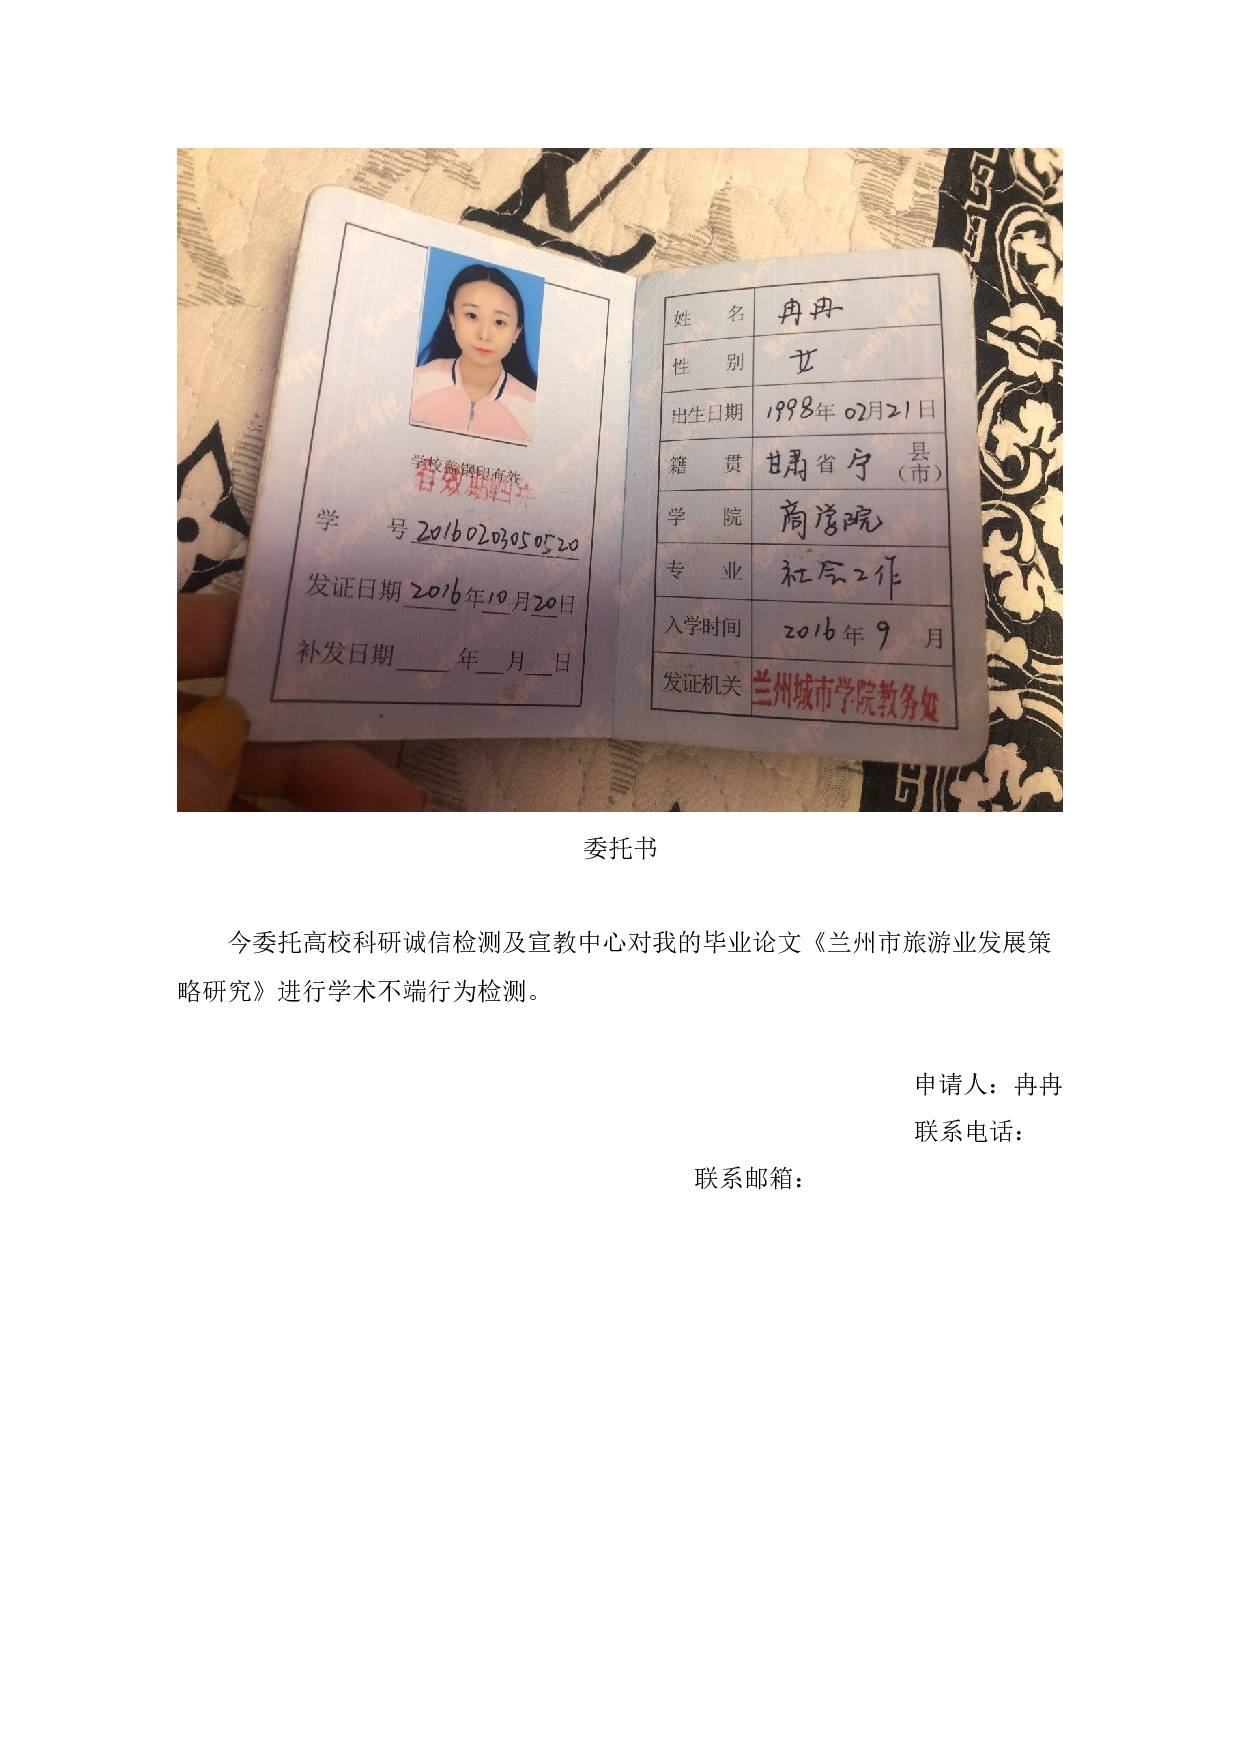 学校盖钢印有效
有效期四年
学 号 20160203050520
发证日期 2016年10月20日
补发日期 年 月 日
姓 名 冉冉
性 别 女
出生日期 1998年02月21日
籍 贯 甘肃省宁 县(市)
学 院 商学院
专 业 社会工作
入学时间 2016年9月
发证机关 兰州城市学院教务处
委托书
今委托高校科研诚信检测及宣教中心对我的毕业论文《兰州市旅游业发展策
略研究》进行学术不端行为检测。
申请人：冉冉
联系电话：
联系邮箱：